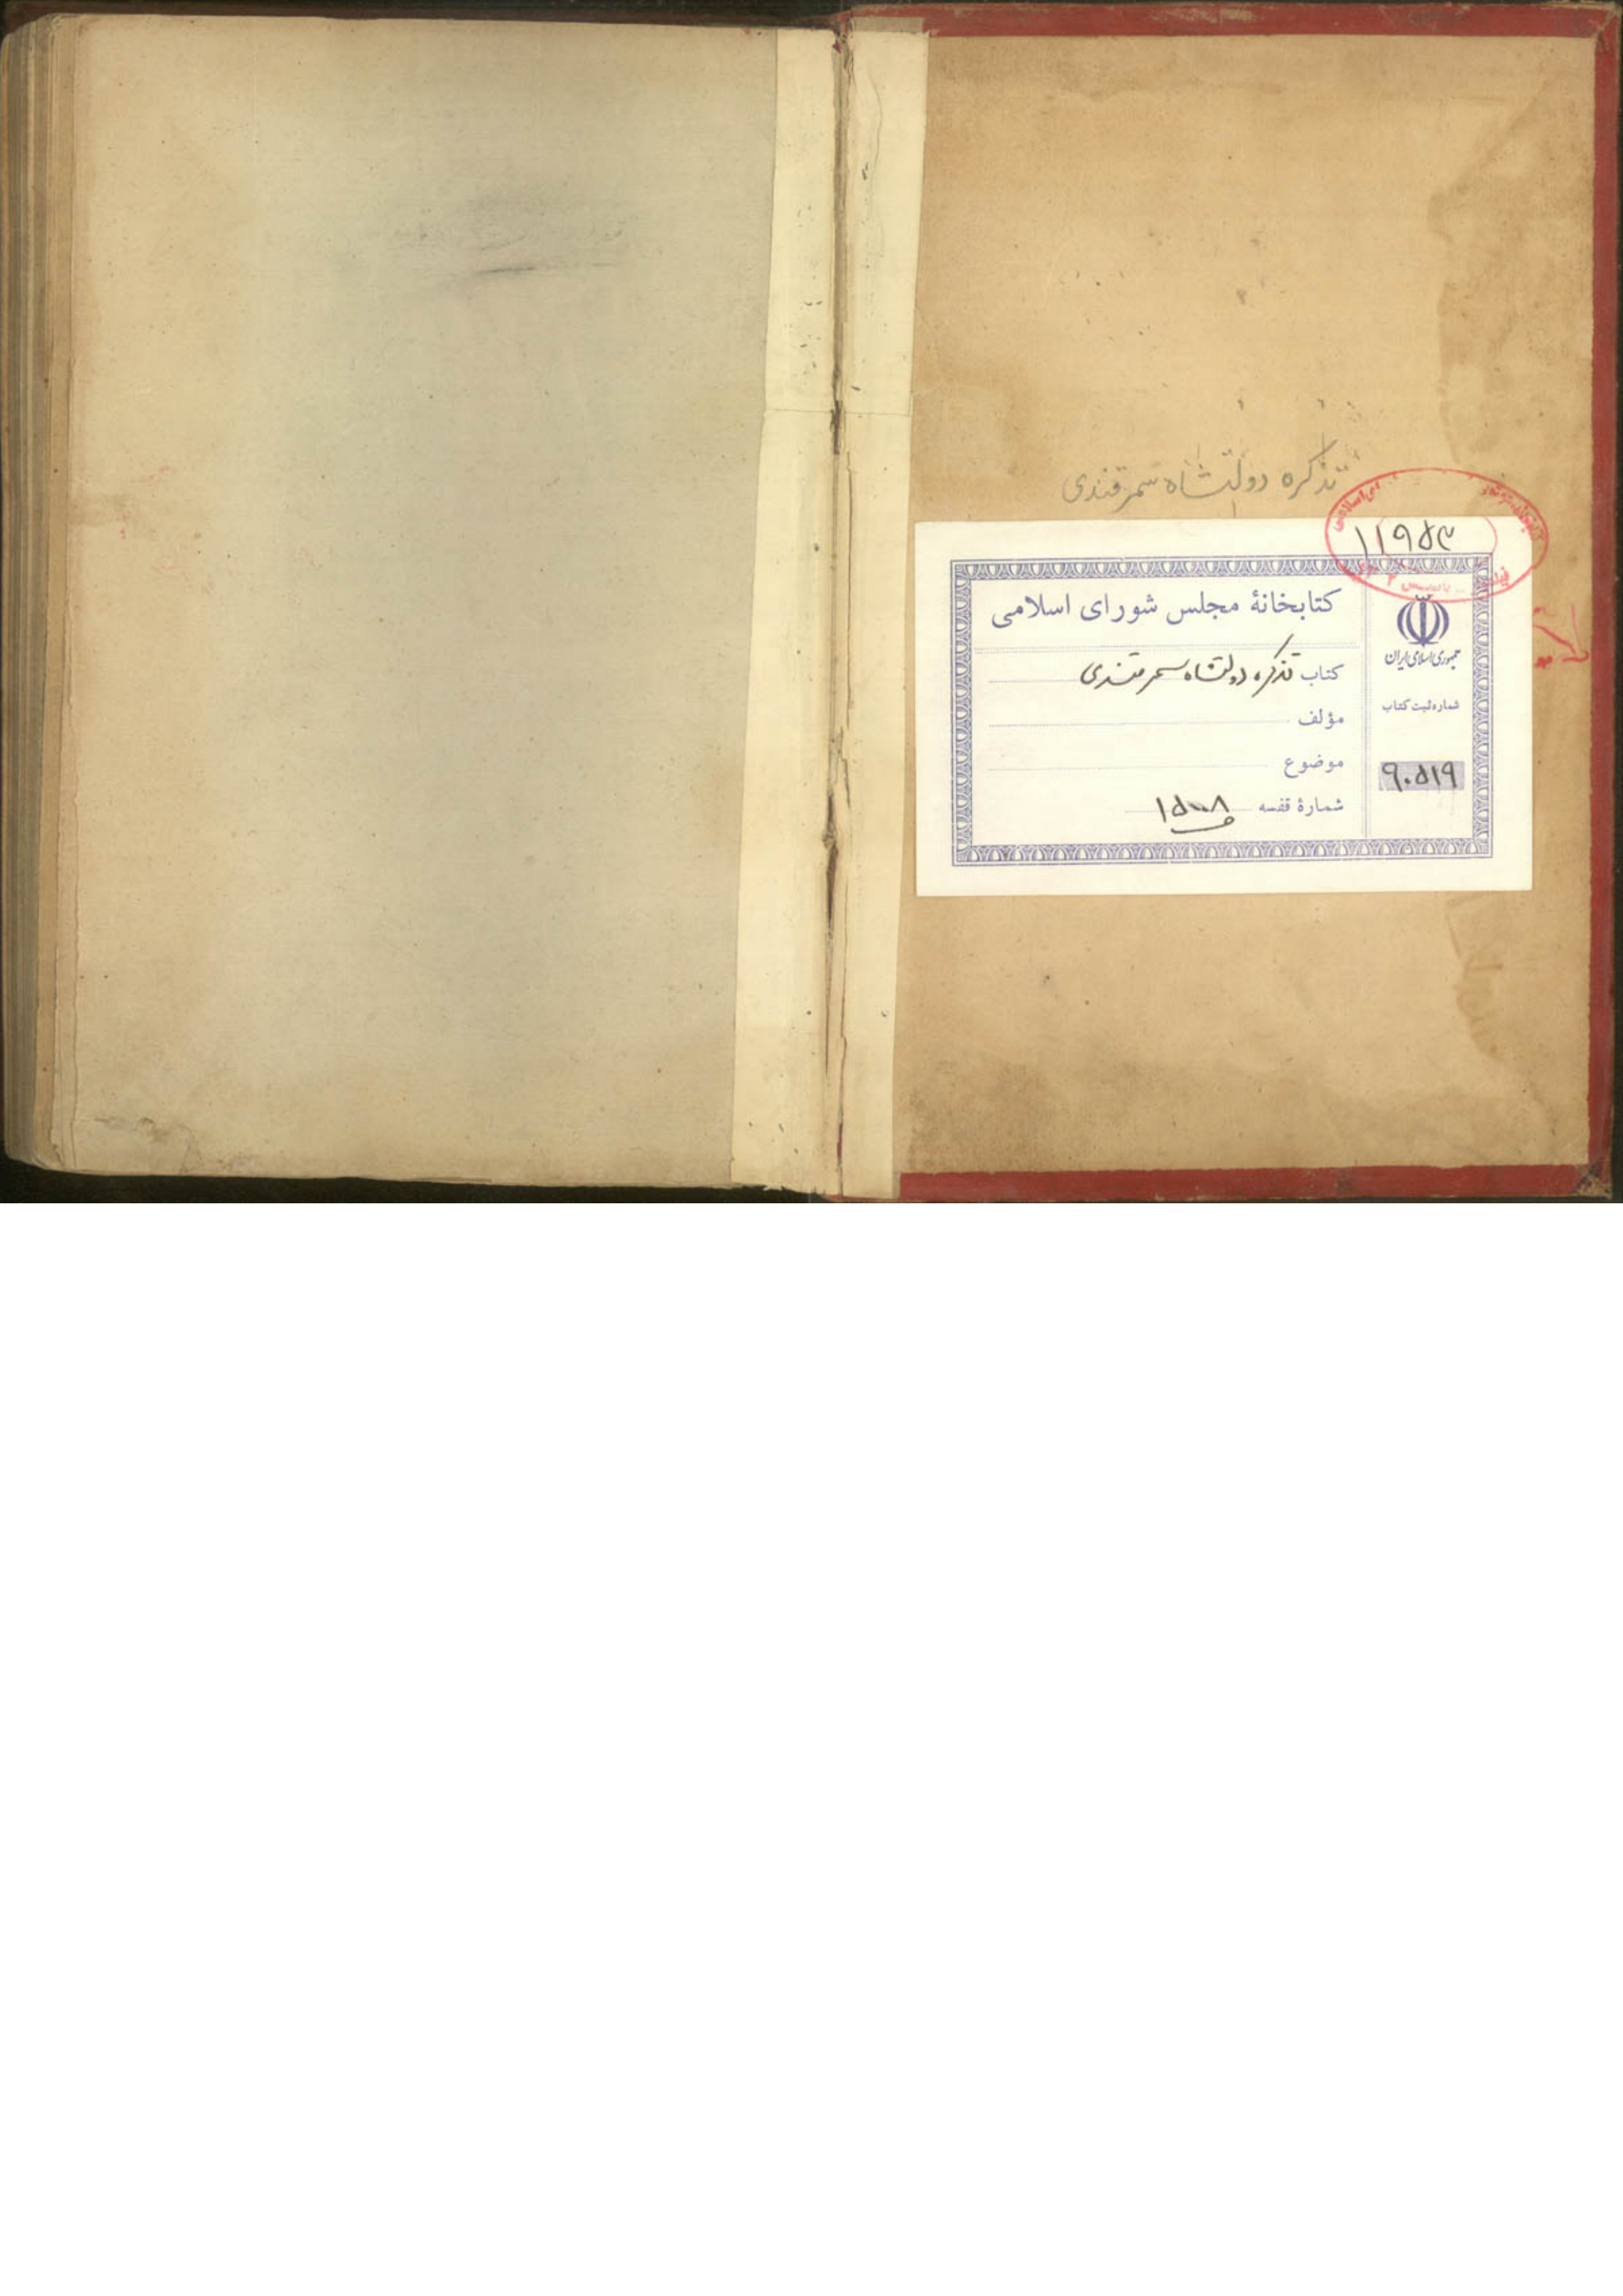 تذکره دولتشاه سمرقندی
۱۱۹۵۳
کتابخانهٔ مجلس شورای اسلامی
کتاب تذکره دولتشاه سمرقندی
مؤلف
موضوع
شمارهٔ قفسه ۱۵۰۰۸
جمهوری اسلامی ایران
شماره ثبت کتاب
۹۰۵۱۹